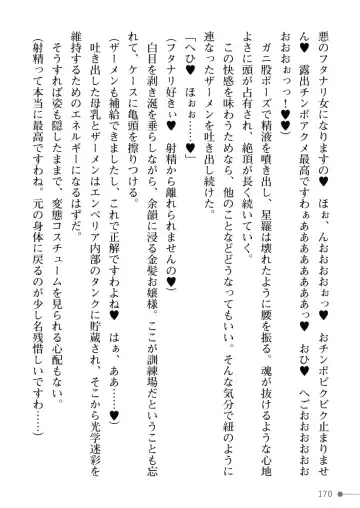 悪のフタナリ女になりますの♥　ほぉ、んおおおおぉっ♥　おチンポビクビク止まりませ
ん♥　露出チンポアクメ最高ですわぁあああああああっ♥　おひ♥　へごおおおおおお
おおおぉっっ！♥♥」
　ガニ股ポーズで精液を噴き出し、星羅は壊れたように腰を振る。魂が抜けるような心地
よさに頭が占有され、絶頂が長く続いていく。
　この快感を味わうためなら、他のことなどどうなってもいい。そんな気分で紐のように
連なったザーメンを吐き出し続けた。
「へひ♥　ほぉぉ……♥」
（フタナリ好きぃ♥　射精から離れられませんの♥）
　白目を剥き涎を垂らしながら、余韻に浸る金髪お嬢様。ここが訓練場だということも忘
れて、ケースに亀頭を擦りつける。
（ザーメンも補給できましたし、これで正解ですわよね♥　はぁ、ああ……♥）
　吐き出した母乳とザーメンはエンペリア内部のタンクに貯蔵され、そこから光学迷彩を
維持するためのエネルギーになるはずだ。
　そうすれば姿も隠したままで、変態コスチュームを見られる心配もない。
（射精って本当に最高ですわね。元の身体に戻るのが少し名残惜しいですわ……）
170